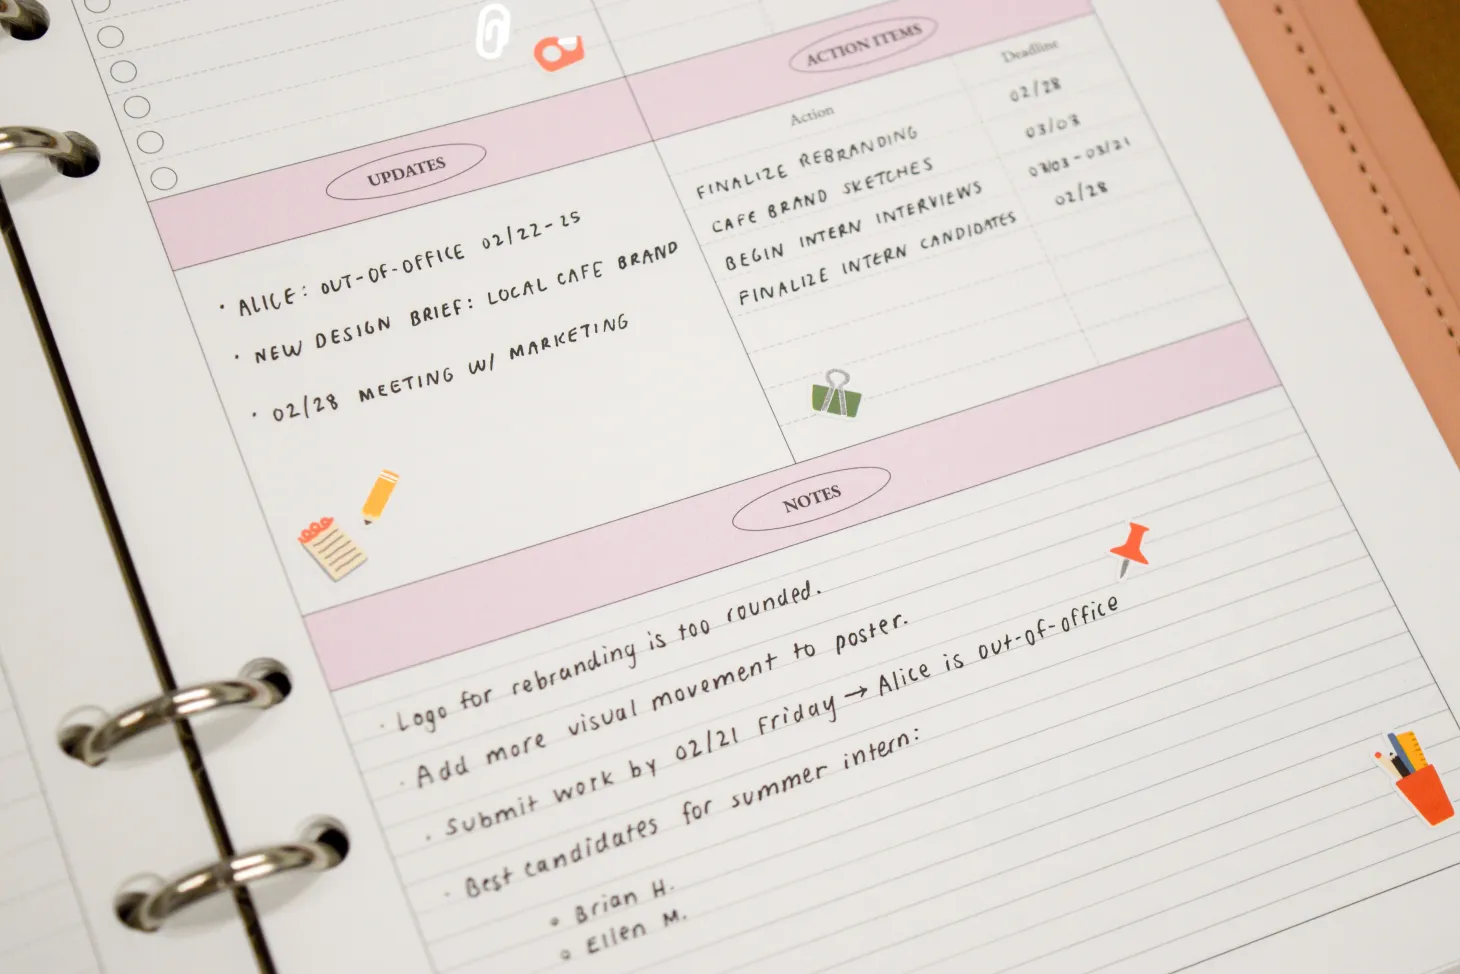 UPDATES
• ALICE: OUT-OF-OFFICE 02/22-25
• NEW DESIGN BRIEF: LOCAL CAFE BRAND
• 02/28 MEETING W/ MARKETING
ACTION ITEMS
Action Deadline
FINALIZE REBRANDING 02/28
CAFE BRAND SKETCHES 03/03
BEGIN INTERN INTERVIEWS 03/03-03/21
FINALIZE INTERN CANDIDATES 02/28
NOTES
• Logo for rebranding is too rounded.
• Add more visual movement to poster.
• Submit work by 02/21 Friday → Alice is out-of-office
• Best candidates for summer intern:
• Brian H.
• Ellen M.